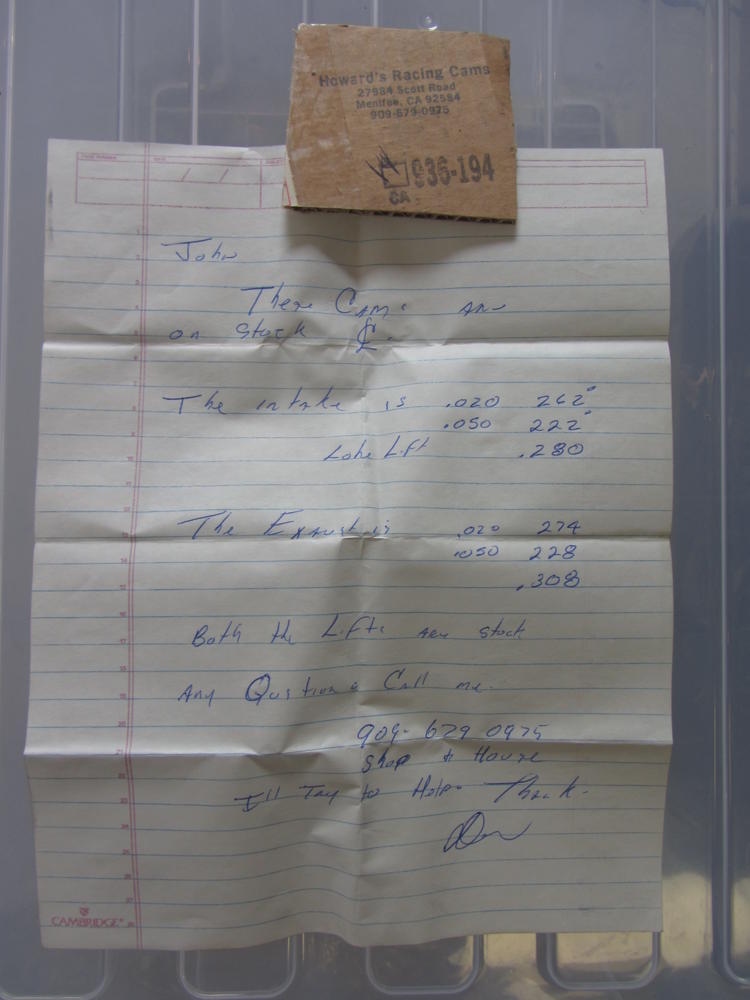 Howard's Racing Cams
27984 Scott Road
Menifee, CA 92584
909-679-0975
936-194
CA
John
These Cams are
on Stock ℄.
The intake is .020 262°
.050 222°
Lobe Lift .280
The Exaust is .020 274
.050 228
.308
Both the Lifts are stock
Any Qustions Call me.
909-679 0975
Shop & House
I'll Try to Help. Thank.
Don
CAMBRIDGE®